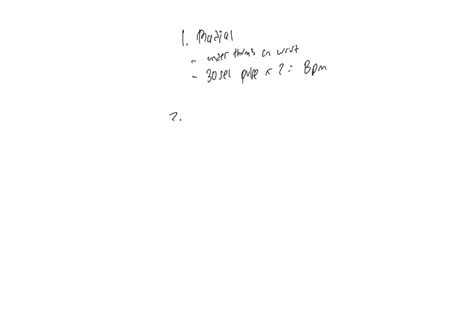 1. Radial
- under thumb on wrist
- 30 sec pulse x 2 = Bpm
2.